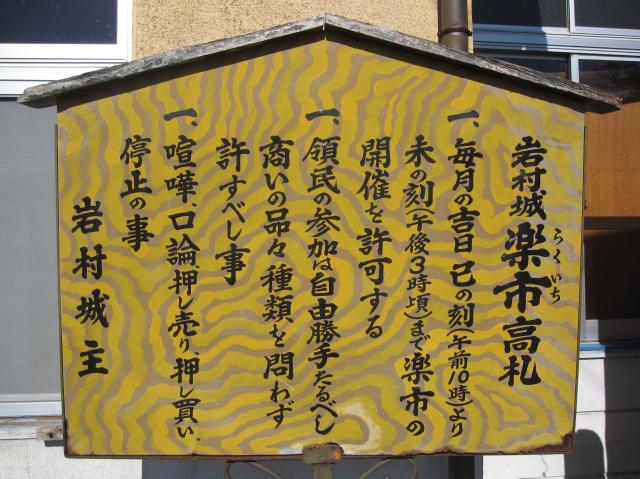 岩村城楽市高札
らくいち
一、毎月の吉日 巳の刻(午前10時)より
未の刻(午後3時頃)まで楽市の
開催を許可する
一、領民の参加は自由勝手たるべし
商いの品々種類を問わず
許すべし事
一、喧嘩口論、押し売り、押し買い、
停止の事
岩村城主